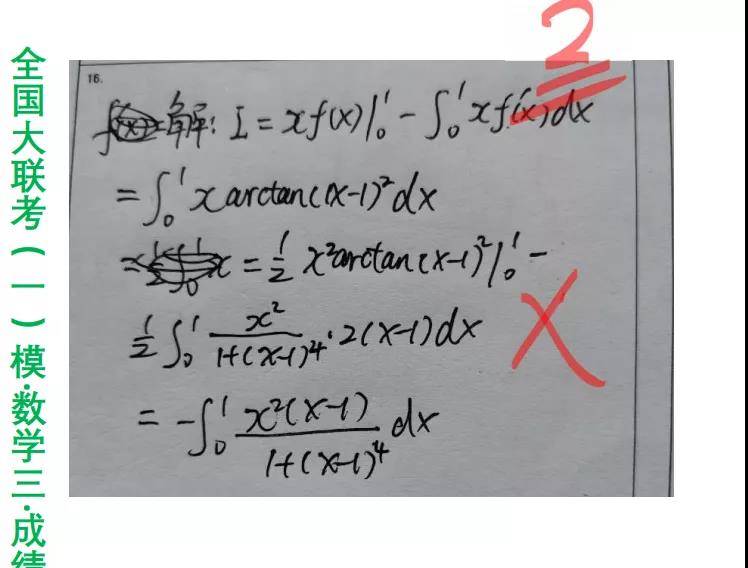 全国大联考(一)模·数学三·成绩
2
16.
解: I = xf(x)|₀¹ - ∫₀¹ xf'(x)dx
= ∫₀¹ x arctan(x-1)² dx
= ½ x² arctan(x-1)² |₀¹ -
½ ∫₀¹ x²/(1+(x-1)⁴) · 2(x-1)dx
= -∫₀¹ x²(x-1)/(1+(x-1)⁴) dx